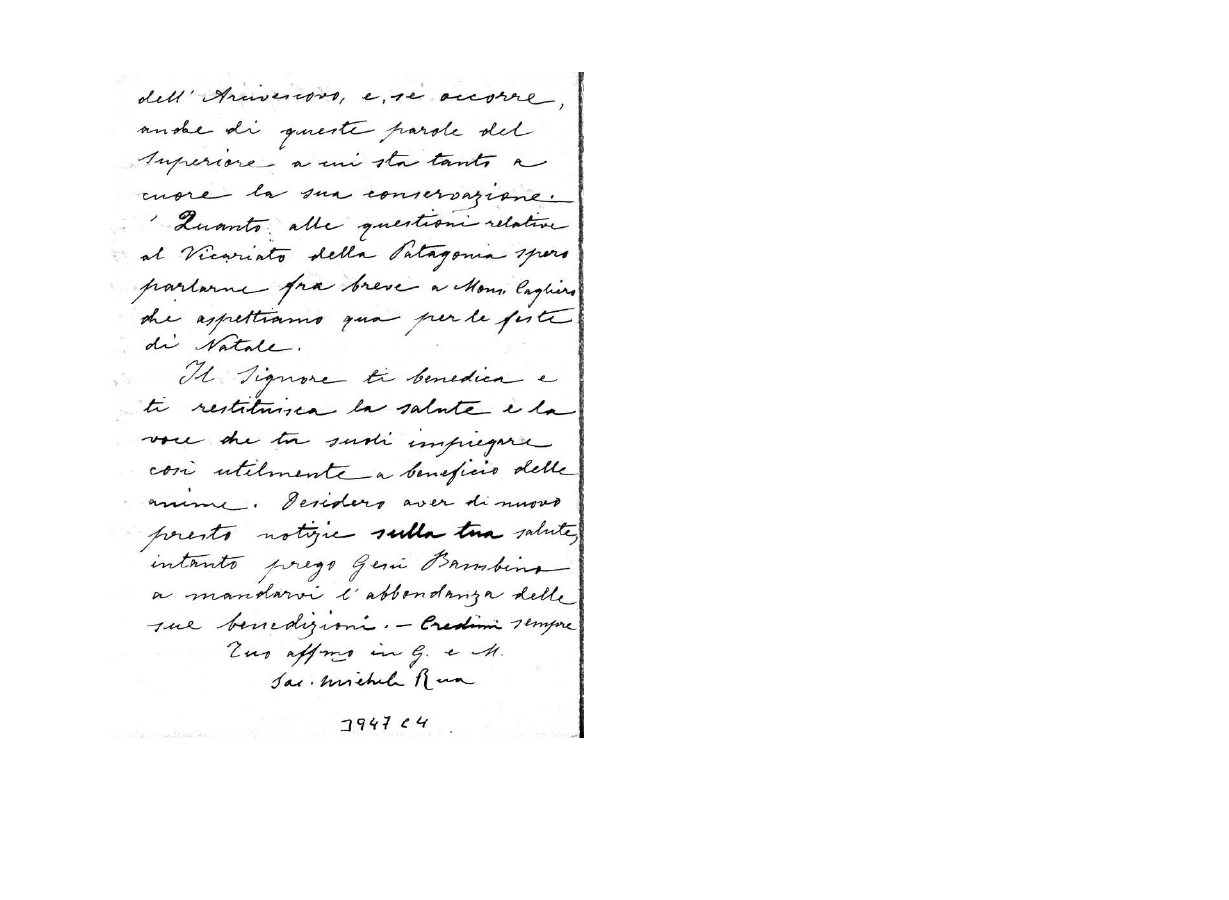 dell' Arcivescovo, e, se occorre,
anche di queste parole del
Superiore a cui sta tanto a
cuore la sua conservazione.
Quanto alle questioni relative
al Vicariato della Patagonia spero
parlarne fra breve a Mons. Cagliero
che aspettiamo qua per le feste
di Natale.
Il Signore ti benedica e
ti restituisca la salute e la
voce che tu suoli impiegare
così utilmente a beneficio delle
anime. Desidero aver di nuovo
presto notizie sulla tua salute,
intanto prego Gesù Bambino
a mandarvi l'abbondanza delle
sue benedizioni. - Credimi sempre
Tuo affmo in G. e M.
Sac. Michele Rua
3947 C 4